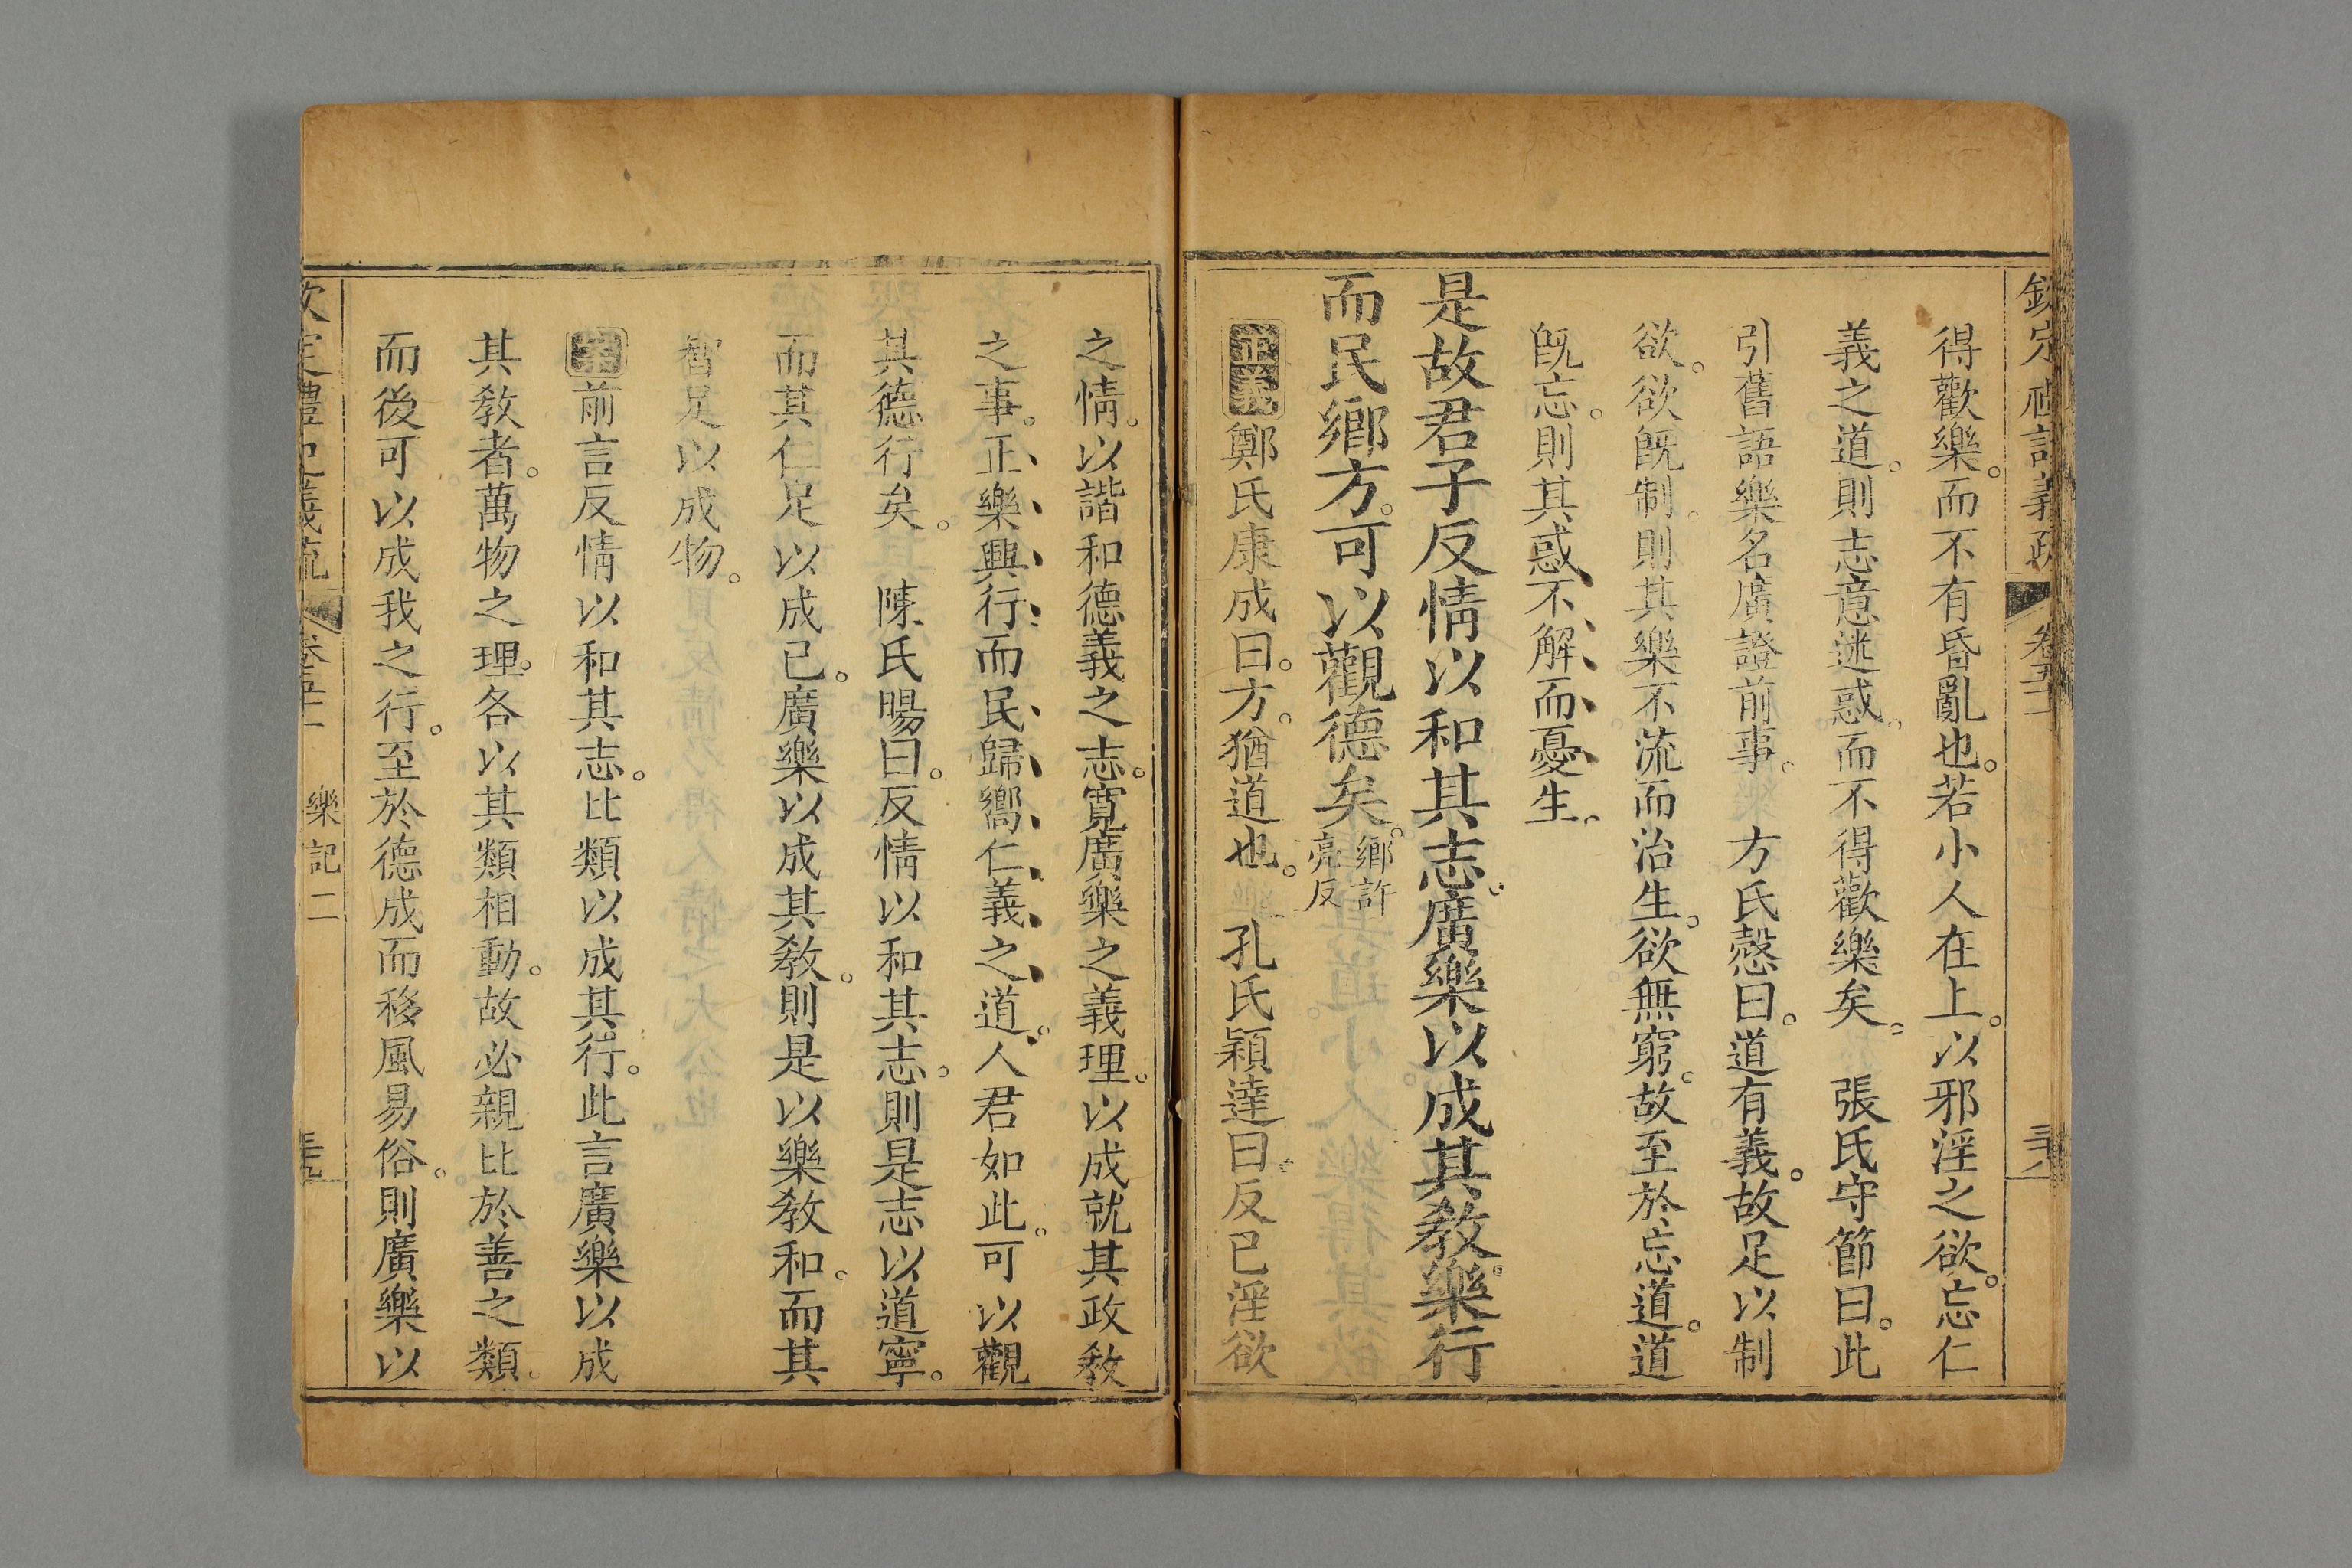 欽定禮記義疏 卷五十一 三十八
得歡樂。而不有昏亂也。若小人在上。以邪淫之欲。忘仁
義之道。則志意迷惑。而不得歡樂矣。 張氏守節曰。此
引舊語樂名廣證前事。 方氏慤曰。道有義。故足以制
欲。欲旣制。則其樂不流而治生。欲無窮。故至於忘道。道
旣忘。則其惑不解而憂生。
是故君子反情以和其志。廣樂以成其敎。樂行
而民鄉方。可以觀德矣。鄉許亮反
正義鄭氏康成曰。方。猶道也。 孔氏穎達曰。反已淫欲
之情。以諧和德義之志。寬廣樂之義理。以成就其政敎
之事。正樂興行。而民歸嚮仁義之道。人君如此。可以觀
其德行矣。 陳氏暘曰。反情以和其志。則是志以道寧。
而其仁足以成已。廣樂以成其敎。則是以樂敎和。而其
智足以成物。
案前言反情以和其志。比類以成其行。此言廣樂以成
其敎者。萬物之理。各以其類相動。故必親比於善之類。
而後可以成我之行。至於德成而移風易俗。則廣樂以
欽定禮記義疏 卷五十一 樂記二 三十九